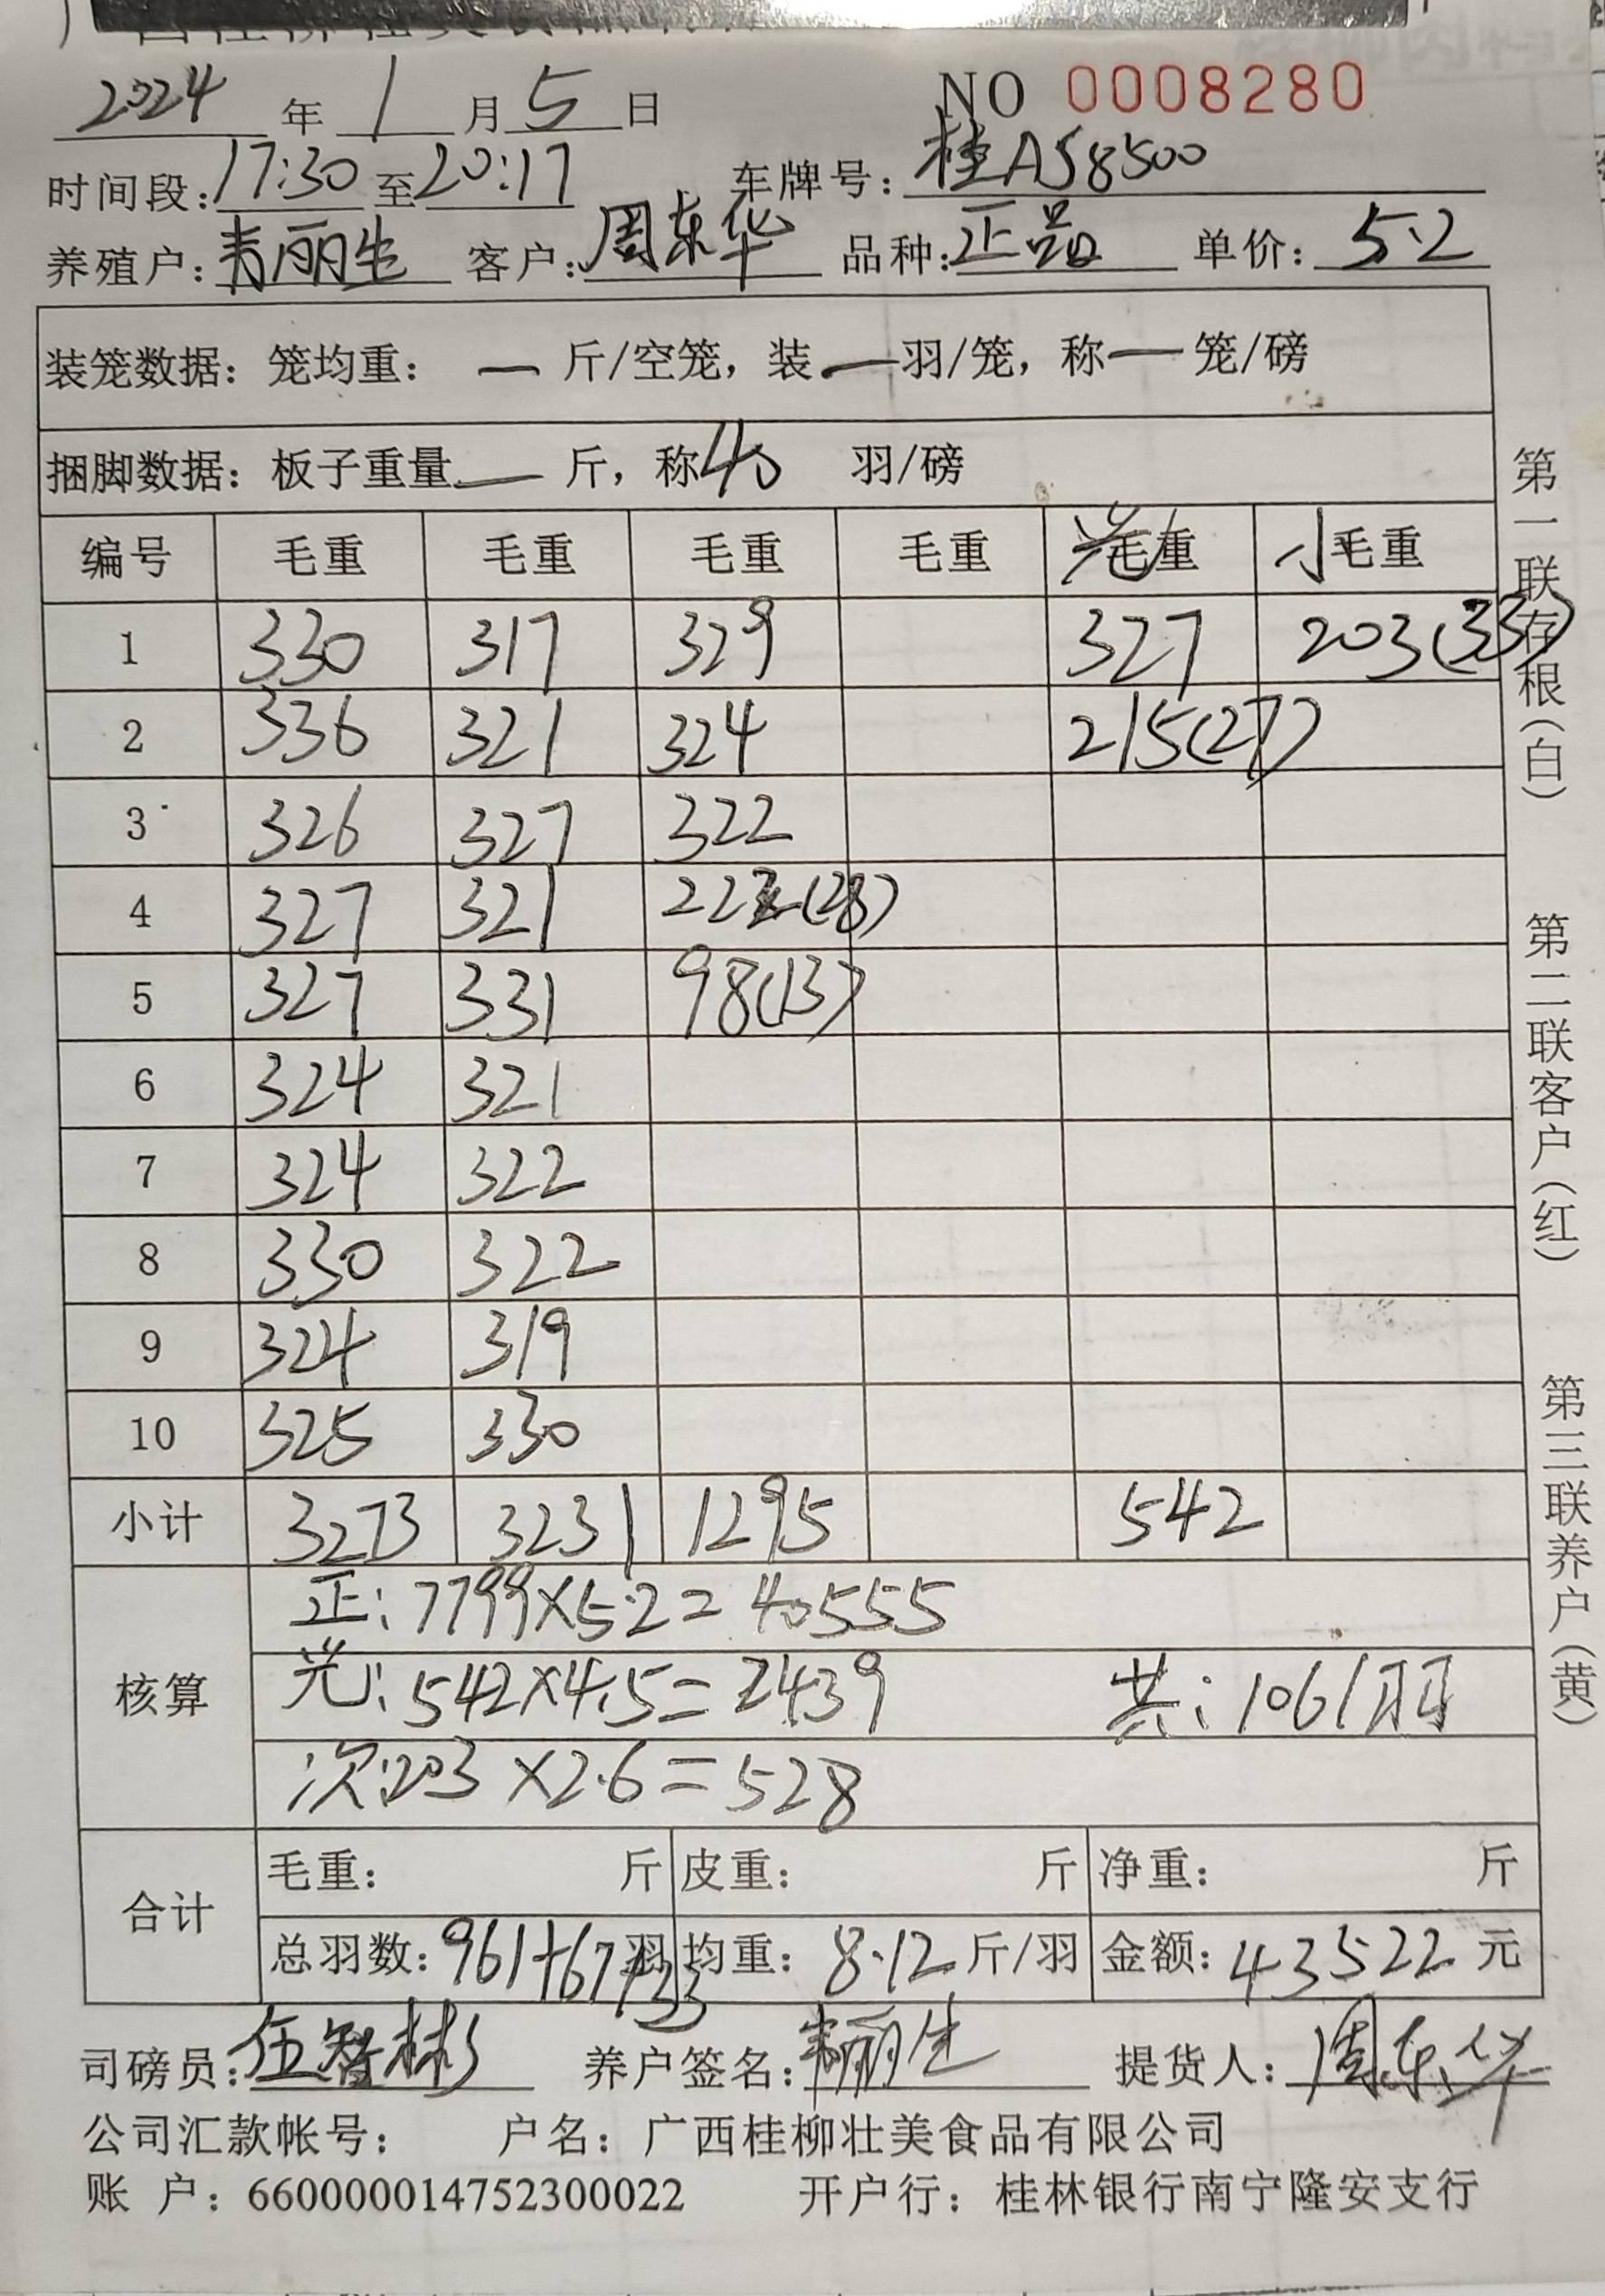 2024 年 1 月 5 日 NO 0008280
时间段: 17:30 至 20:17 车牌号: 桂A58500
养殖户: 韦丽生 客户: 周东华 品种: 正品 单价: 5.2
装笼数据: 笼均重: — 斤/空笼, 装 — 羽/笼, 称 — 笼/磅
捆脚数据: 板子重量 — 斤, 称 40 羽/磅
编号 毛重 毛重 毛重 毛重 光毛重 小毛重
1 330 317 329 327 203(33)
2 336 321 324 215(27)
3 326 327 322
4 327 321 222(28)
5 327 331 98(13)
6 324 321
7 324 322
8 330 322
9 324 319
10 325 330
小计 3273 3231 1295 542
正: 7799×5.2=40555
核算 光: 542×4.5=2439 共: 1061羽
次:203×2.6=528
合计 毛重: 斤 皮重: 斤 净重: 斤
总羽数: 961+67+33 羽 均重: 8.12 斤/羽 金额: 43522 元
司磅员: 伍智彬 养户签名: 韦丽生 提货人: 周东华
公司汇款帐号: 户名: 广西桂柳壮美食品有限公司
账 户: 660000014752300022 开户行: 桂林银行南宁隆安支行
第一联存根(白)
第二联客户(红)
第三联养户(黄)